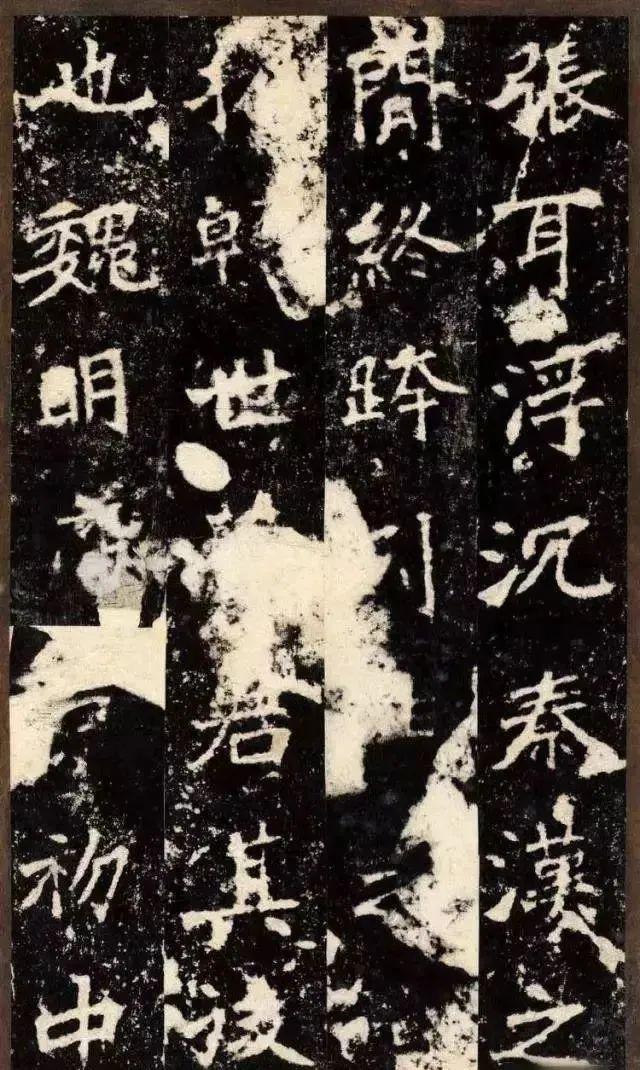 張耳浮沉秦漢之
間終跨列之
世君其後
也魏明初中